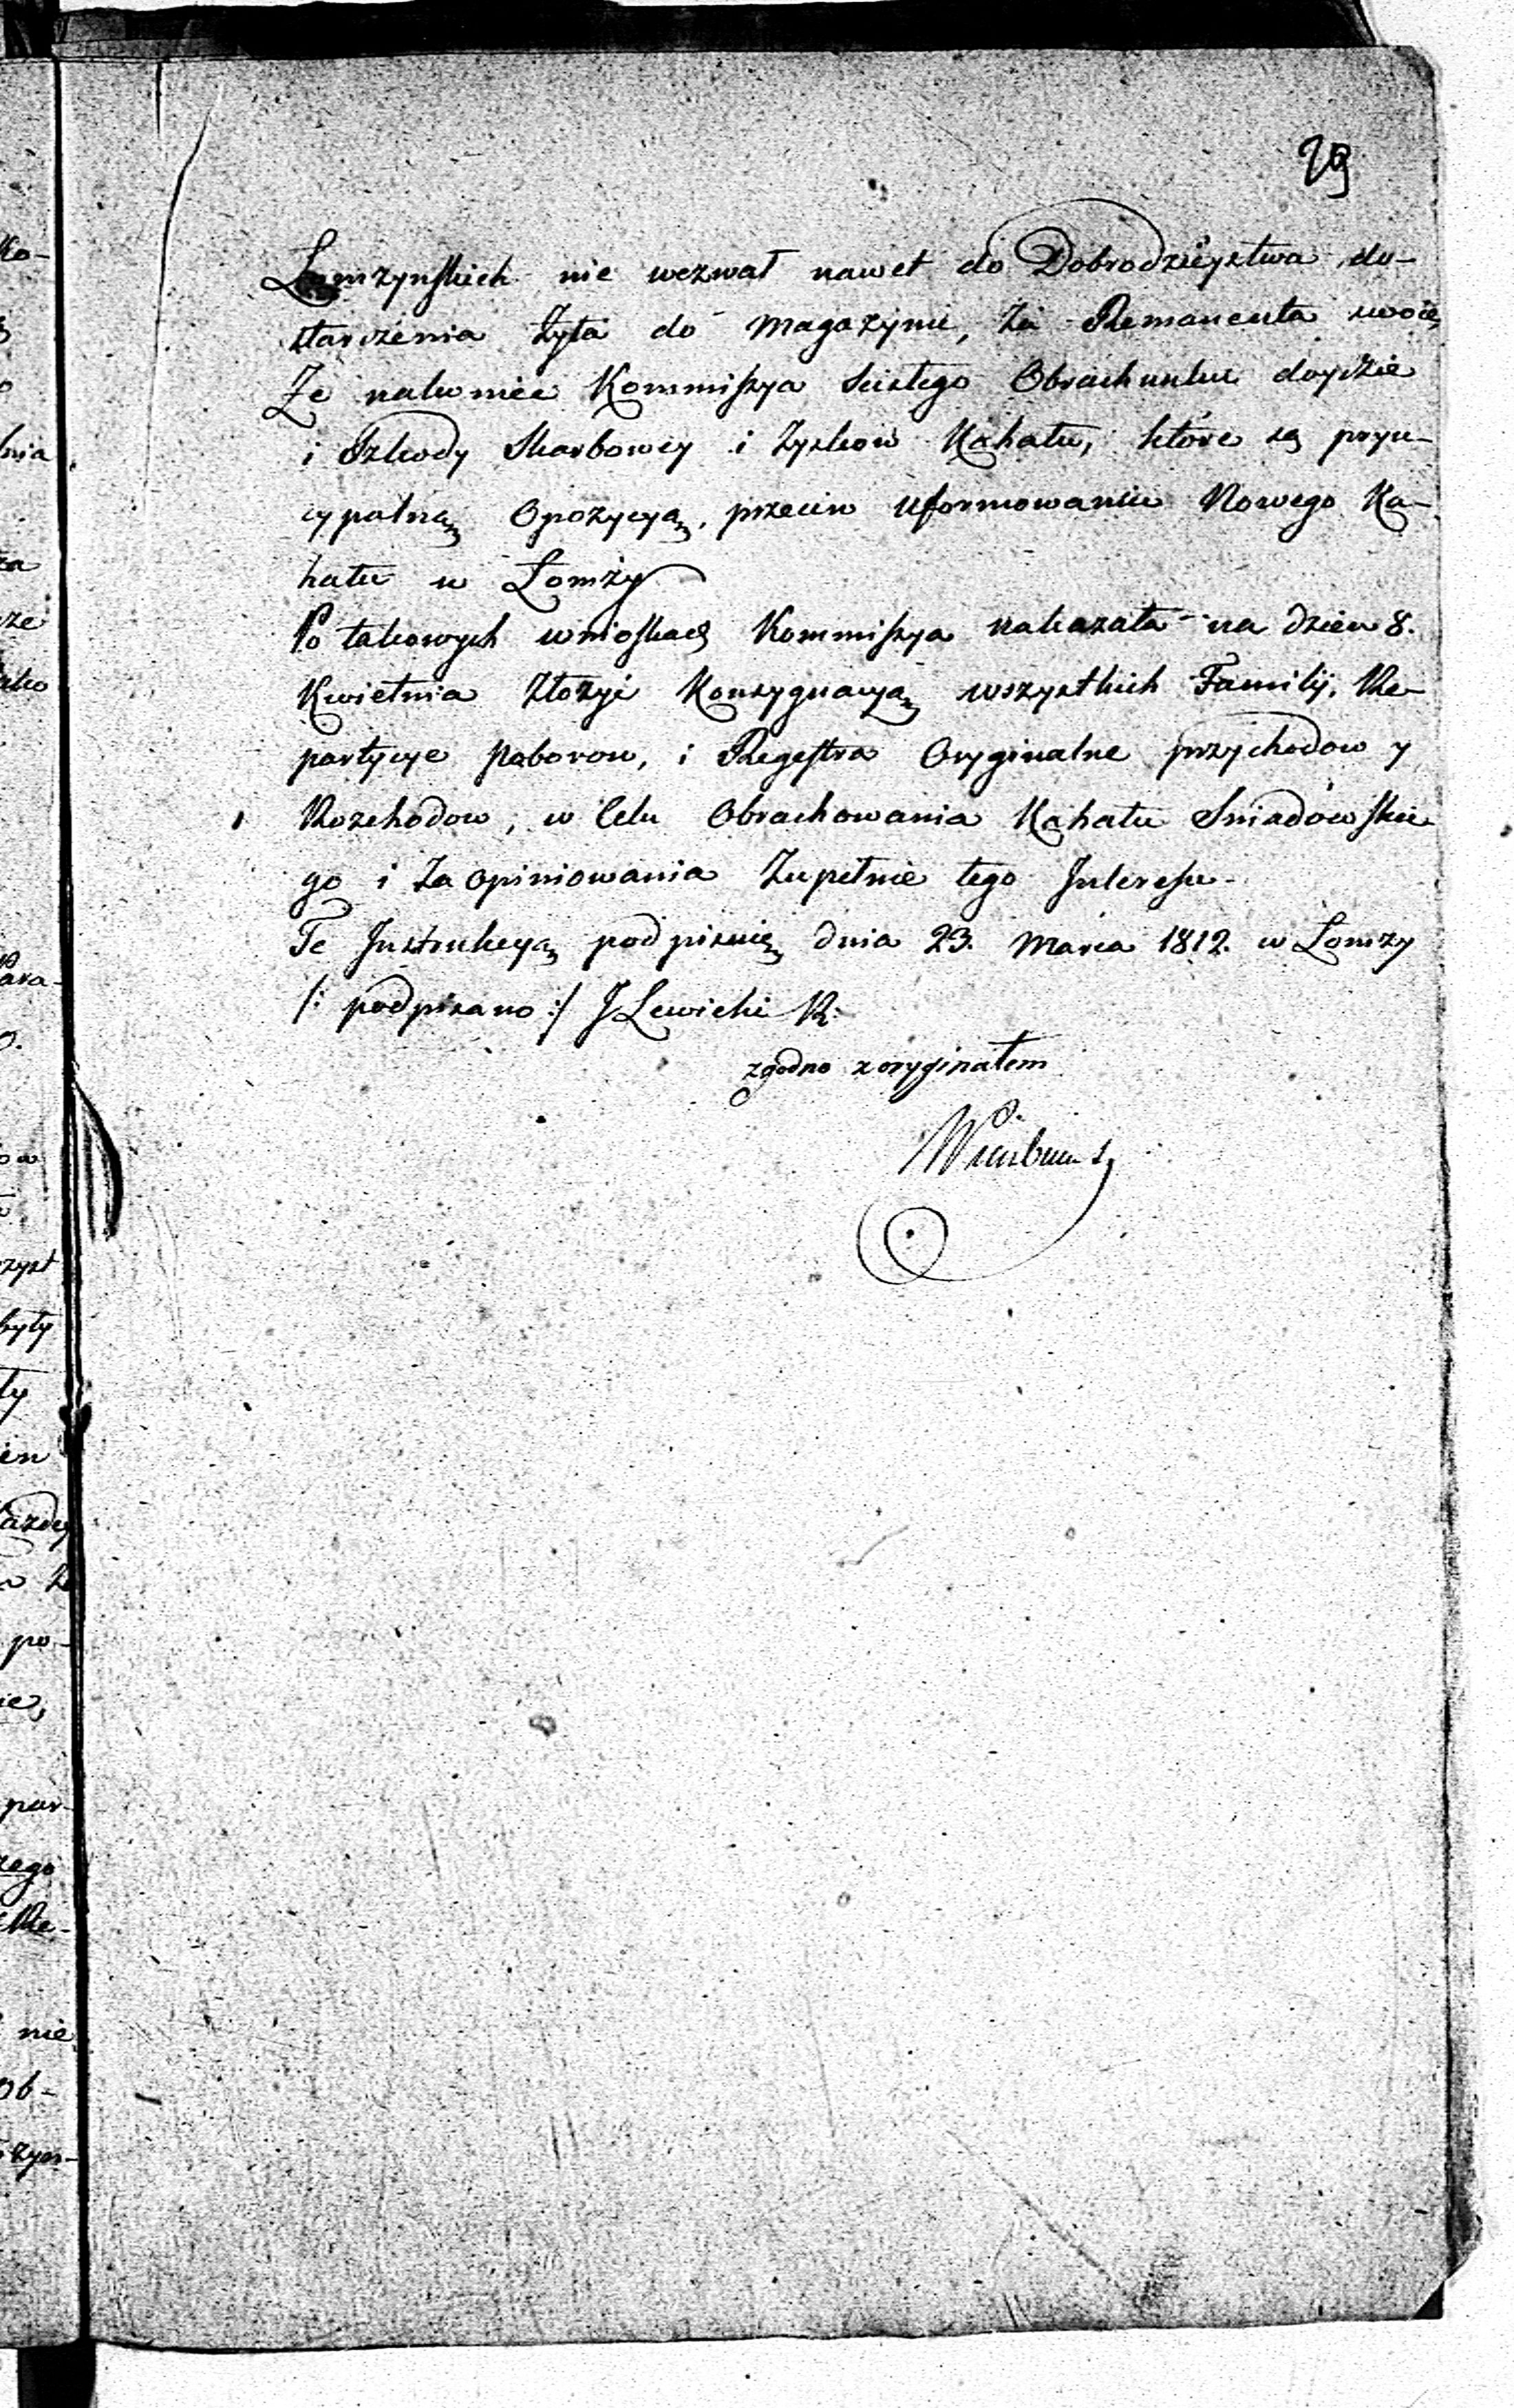 29
Łomzynskich nie wezwał nawet do Dobrodzieystwa do-
starczenia Zyta do Magazynu, Za Remanenta swoie,
Ze nakoniec Kommissya scisłego Obrachunku doydzie
i Szkody Skarbowey i Zyskow Kahału, ktore są pryn-
cypalną Opozycyą, przeciw uformowaniu Nowego Ka-
hału w Łomży
Po takowych wnioskach Kommissya nakazała na dzien 8.
Kwietnia złożyć Konsygnacyą wszystkich Familij, Re-
partycye Poborow, i Regestra Oryginalne przychodow y
Rozchodow, w Celu Obrachowania Kahału Sniadowskie-
go i Zaopiniowania Zupełnie tego Interessu.
Te Instrukcyą podpisuię dnia 23. Marca 1812. w Łomzy
/: podpisano :/ J Lewicki R:
zgodno z oryginałem
Ko-
nia
za
sze
ako
Para-
ow
zyst
były
ły
en
każdey
po-
ie,
par-
Re-
nie
ob-